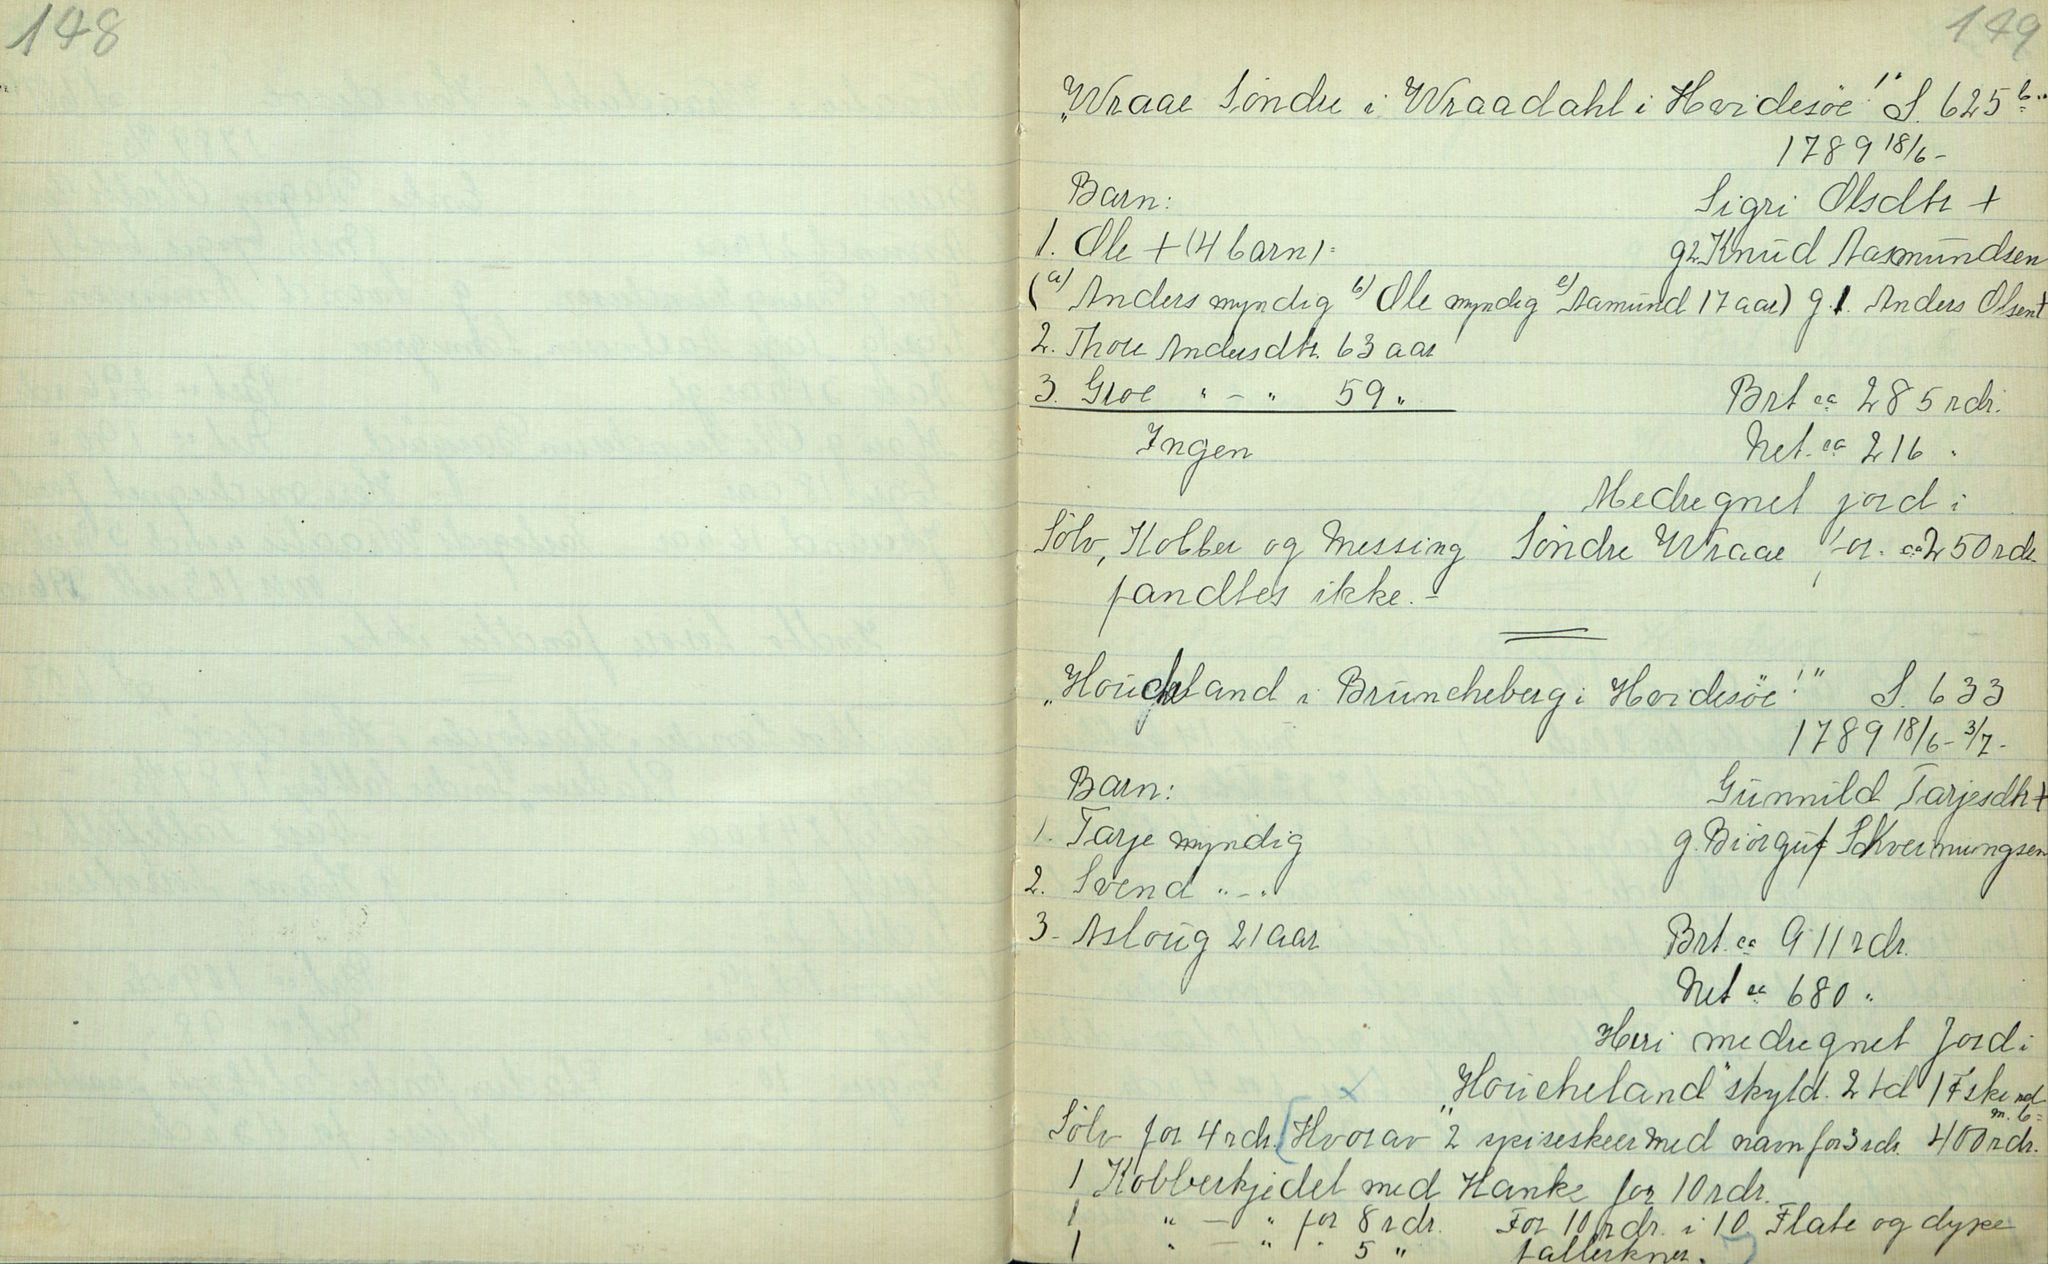 148
149
"Wraae Söndre i Wraadahl i Hvidesöe!" S. 625 b.
1789 18/6 -
Barn:
Sigri Olsdtr +
1. Ole + (4 barn):
g2 Knud Aasmundsen
(a) Anders myndig b) Ole myndig c) Aamund 17 aar) g. 1. Anders Olsen +
2. Thore Andersdtr. 63 aar
3. Groe " - " 59 "
Brt ca 285 rdr.
Ingen
Net. ca 216 "
Medregnet jord i
Sölv, Kobber og Messing
Söndre Wraae for ca 250 rdr
fandtes ikke. -
"Houcheland i Bruncheberg i Hvidesöe!" S. 633
1789 18/6 - 3/7 -
Barn:
Gunnild Tarjesdtr +
1. Tarje myndig
g. Biörguf Skvermungsen
2. Svend " - "
3 - Asloug 21 aar
Brt. ca 911 rdr.
Net ca 680 "
Heri medregnet Jord i
"Houcheland" skyld. 2 td 1 Fske med
m. b =
Sölv for 4 rdr. [Hvorav 2 spiseskeer med navn for 3 rdr. 400 rdr.
1 Kobberkjedel med Hanke for 10 rdr.
1 " - " for 8 rdr. For 10 rdr. i 10 Flate og dype
1 " - " " 5 " tallerkner.]